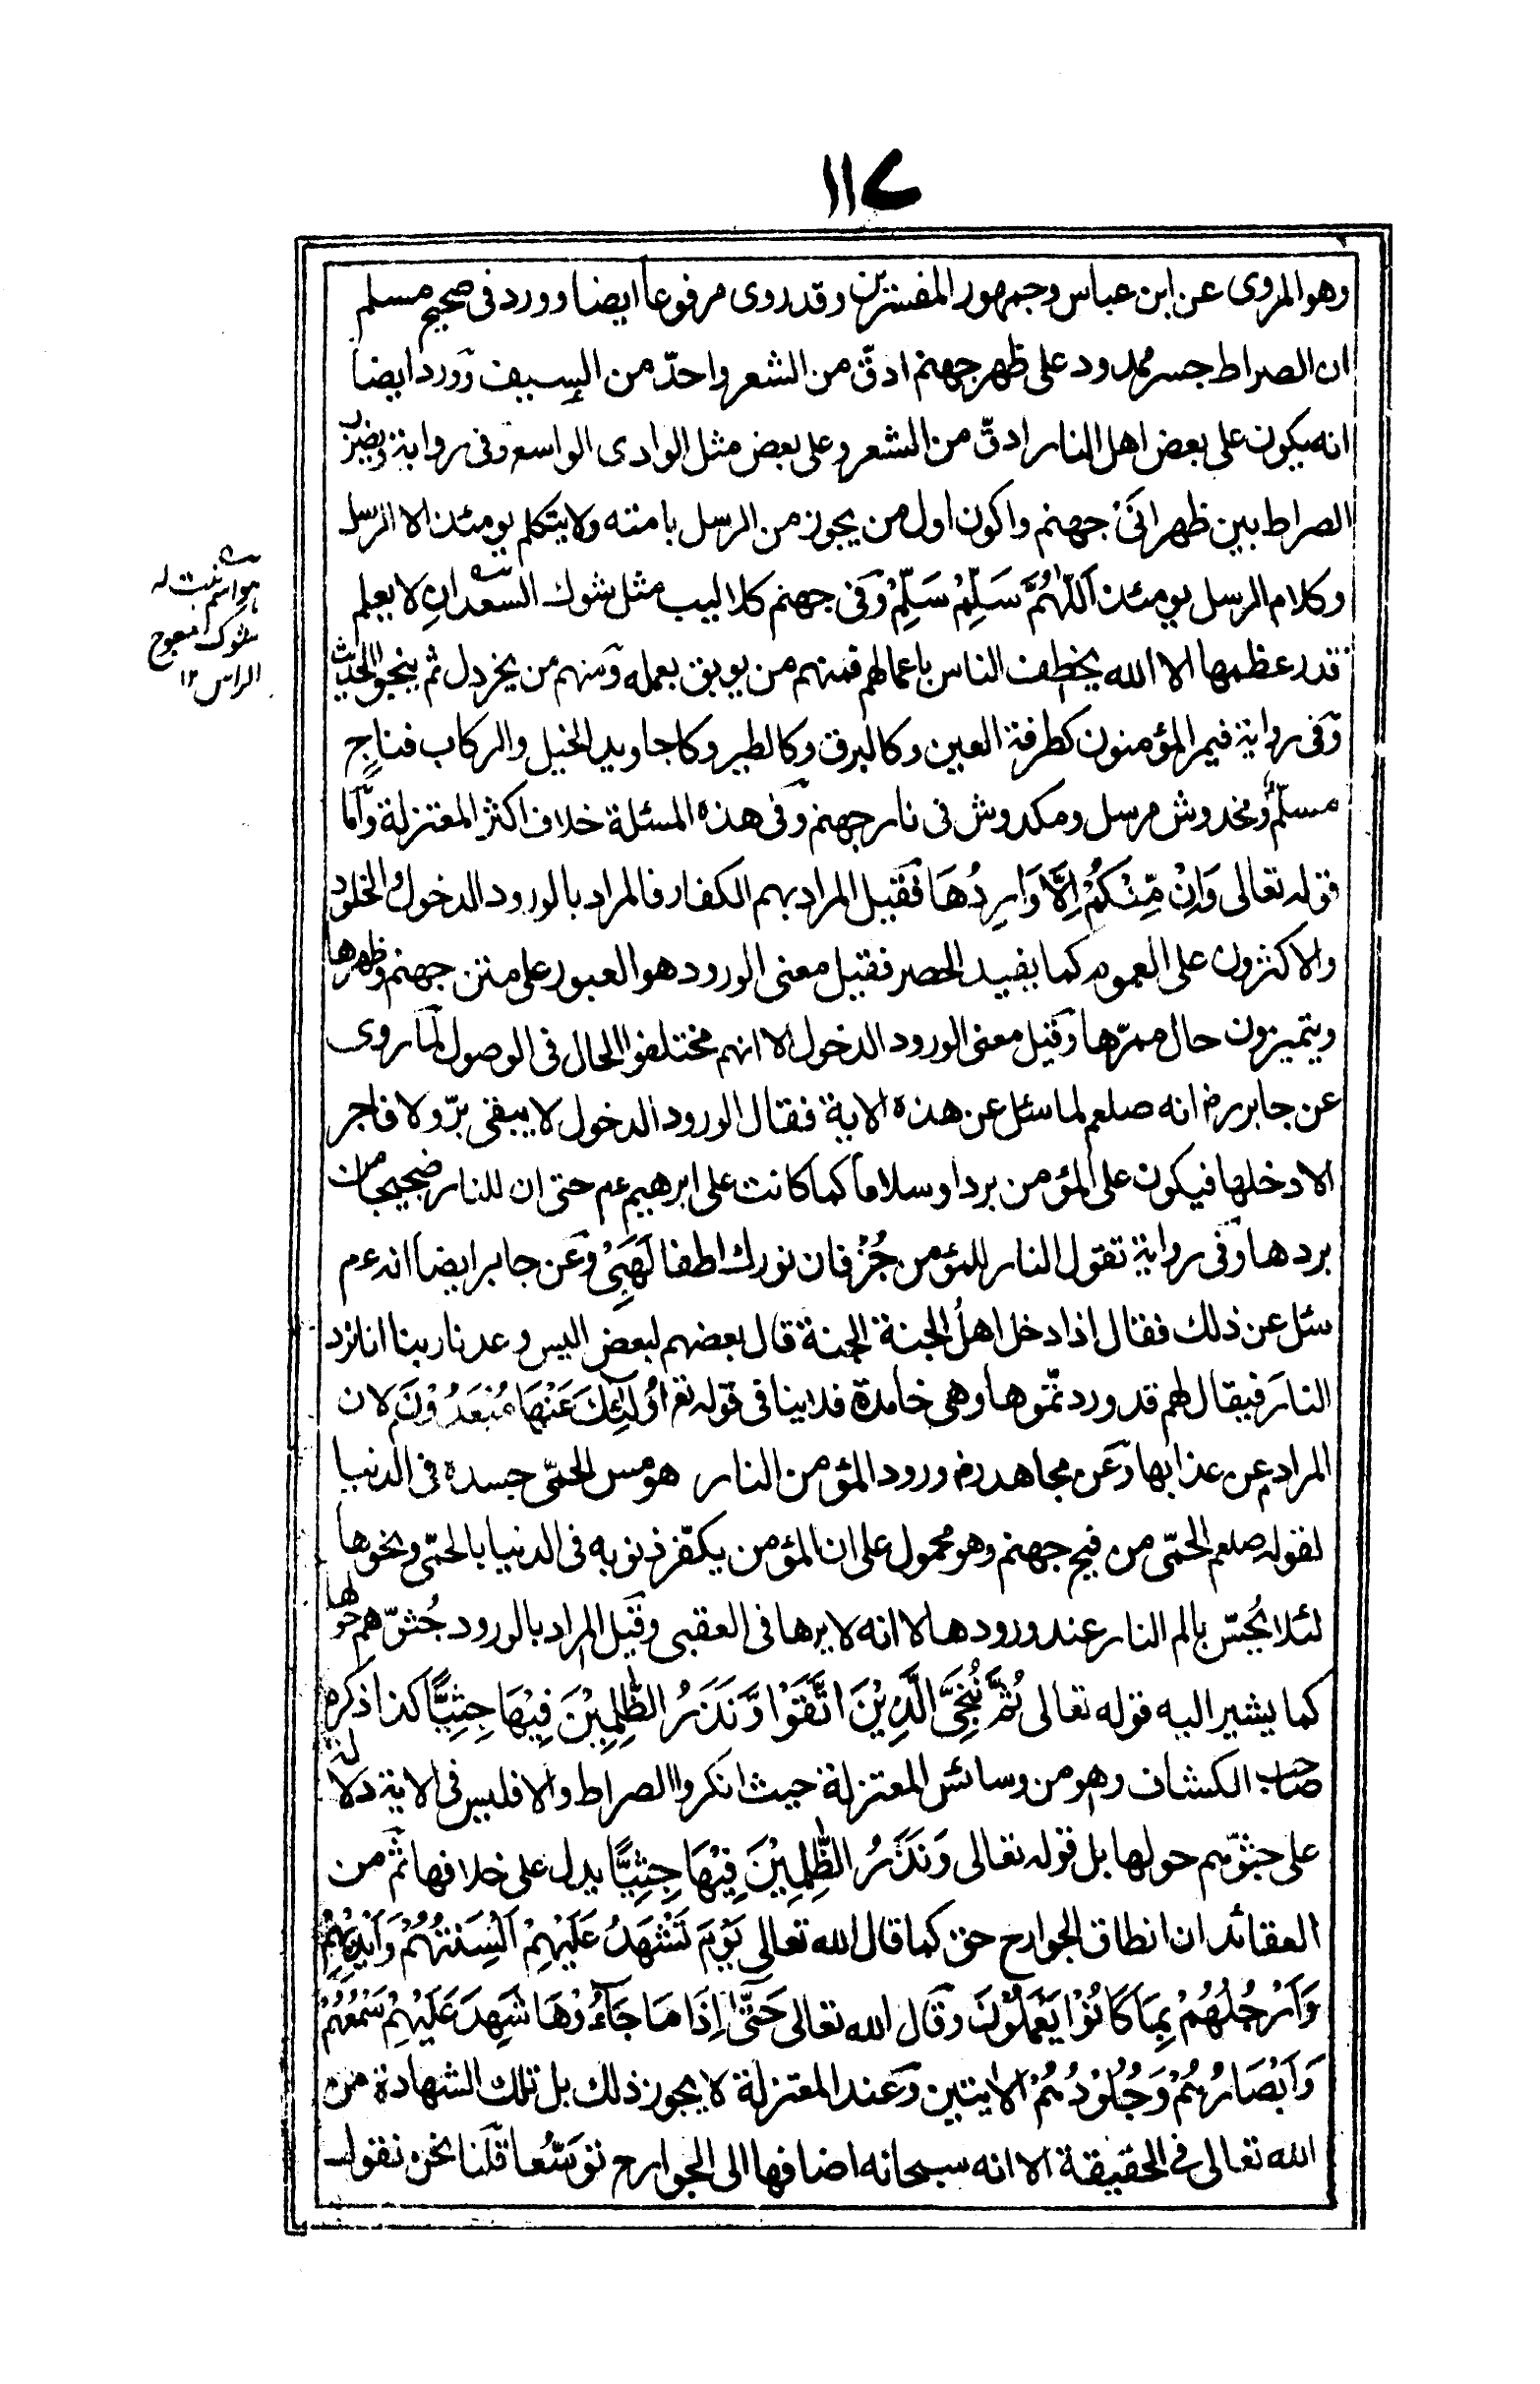 ١١٧
وهو المروى عن ابن عباس وجمهور المفسرين وقد روى مرفوعا ايضا وورد فى صحيح مسلم
ان الصراط جسر ممدود على ظهر جهنم ادقّ من الشعر واحدّ من السيف وورد ايضا
انه يكون على بعض اهل النار ادقّ من الشعر وعلى بعض مثل الوادى الواسع وفى رواية ويضرب
الصراط بين ظهرانَىْ جهنم واكون اول من يجوز من الرسل بامته ولا يتكلم يومئذ الا الرسل
وكلام الرسل يومئذ اَللّٰهُمَّ سَلِّمْ سَلِّمْ وفى جهنم كلاليب مثل شوك السَّعدانِ لا يعلم
قدر عظمها الا الله يخطف الناس باعمالهم فمنهم من يوبق بعمله ومنهم من يخردل ثم ينجو الحديث
وفى رواية فيمر المؤمنون كطرفة العين وكالبرق وكالطير وكاجاويد الخيل والركاب فناجٍ
مسلّمٌ ومخدوش مرسل ومكدوش فى نار جهنم وفى هذه المسئلة خلاف اكثر المعتزلة وآما
قوله تعالى وَاِنْ مِّنْكُمْ اِلَّا وَارِدُهَا فقيل المراد بهم الكفار فالمراد بالورود الدخول والخلود
والاكثرون على العموم كما يفيد الحصر فقيل معنى الورود هو العبور على متن جهنم وظهرها
ويتميزون حال ممرّها وقيل معنى الورود الدخول الا انهم مختلفوا الحال فى الوصول لما روى
عن جابر رض انه صلعم لما سئل عن هذه الاية فقال الورود الدخول لا يبقى برّ ولا فاجر
الا دخلها فيكون على المؤمن بردا وسلاما كما كانت على ابرهيم عم حتى ان للنار ضجيجا من
بردها وفى رواية تقول النار للمؤمن جُزْ فان نورك اطفا لَهَبِىْ وعن جابر ايضا انه عم
سئل عن ذلك فقال اذا دخل اهلُ الجنة الجنة قال بعضهم لبعض اليس وعدنا ربنا ان نرد
النارَ فيقال لهم قد وردتّموها وهى خامدة فلا ينافى قوله تع اُولٰٓئِكَ عَنْهَا مُبْعَدُوْنَ لان
المراد عن عذابها وعن مجاهد رض ورود المؤمن النار هو مس الحمّى جسده فى الدنيا
لقوله صلعم الحمّى من فيح جهنم وهو محمول على ان المؤمن يكفّر ذنوبه فى الدنيا بالحمّى ونحوها
لئلا يُحِسّ بالم النار عند ورودها لا انه لا يرها فى العقبى وقيل المراد بالورود جُثوّهم حولها
كما يشير اليه قوله تعالى ثُمَّ نُنَجِّى الَّذِيْنَ اتَّقَوْا وَّنَذَرُ الظّٰلِمِيْنَ فِيْهَا جِثِيًّا كذا ذكره
صاحب الكشاف وهو من وسائس المعتزلة حيث انكروا الصراط والا فليس فى الاية دلالة
على جثوّهم حولها بل قوله تعالى وَنَذَرُ الظّٰلِمِيْنَ فِيْهَا جِثِيًّا يدل على خلافها ثم من
العقائد ان انطاق الجوارح حق كما قال الله تعالى يَوْمَ تَشْهَدُ عَلَيْهِمْ اَلْسِنَتُهُمْ وَاَيْدِيْهِمْ
وَاَرْجُلُهُمْ بِمَا كَانُوْا يَعْمَلُوْنَ وقال الله تعالى حَتّٰى اِذَا مَا جَآءُوْهَا شَهِدَ عَلَيْهِمْ سَمْعُهُمْ
وَاَبْصَارُهُمْ وَجُلُوْدُهُمْ الايتين وعند المعتزلة لا يجوز ذلك بل تلك الشهادة من
الله تعالى فى الحقيقة الا انه سبحانه اضافها الى الجوارح توسّعا قلنا نحن نقول
هو اسم نبت له
شوك معوج
الراس ١٢